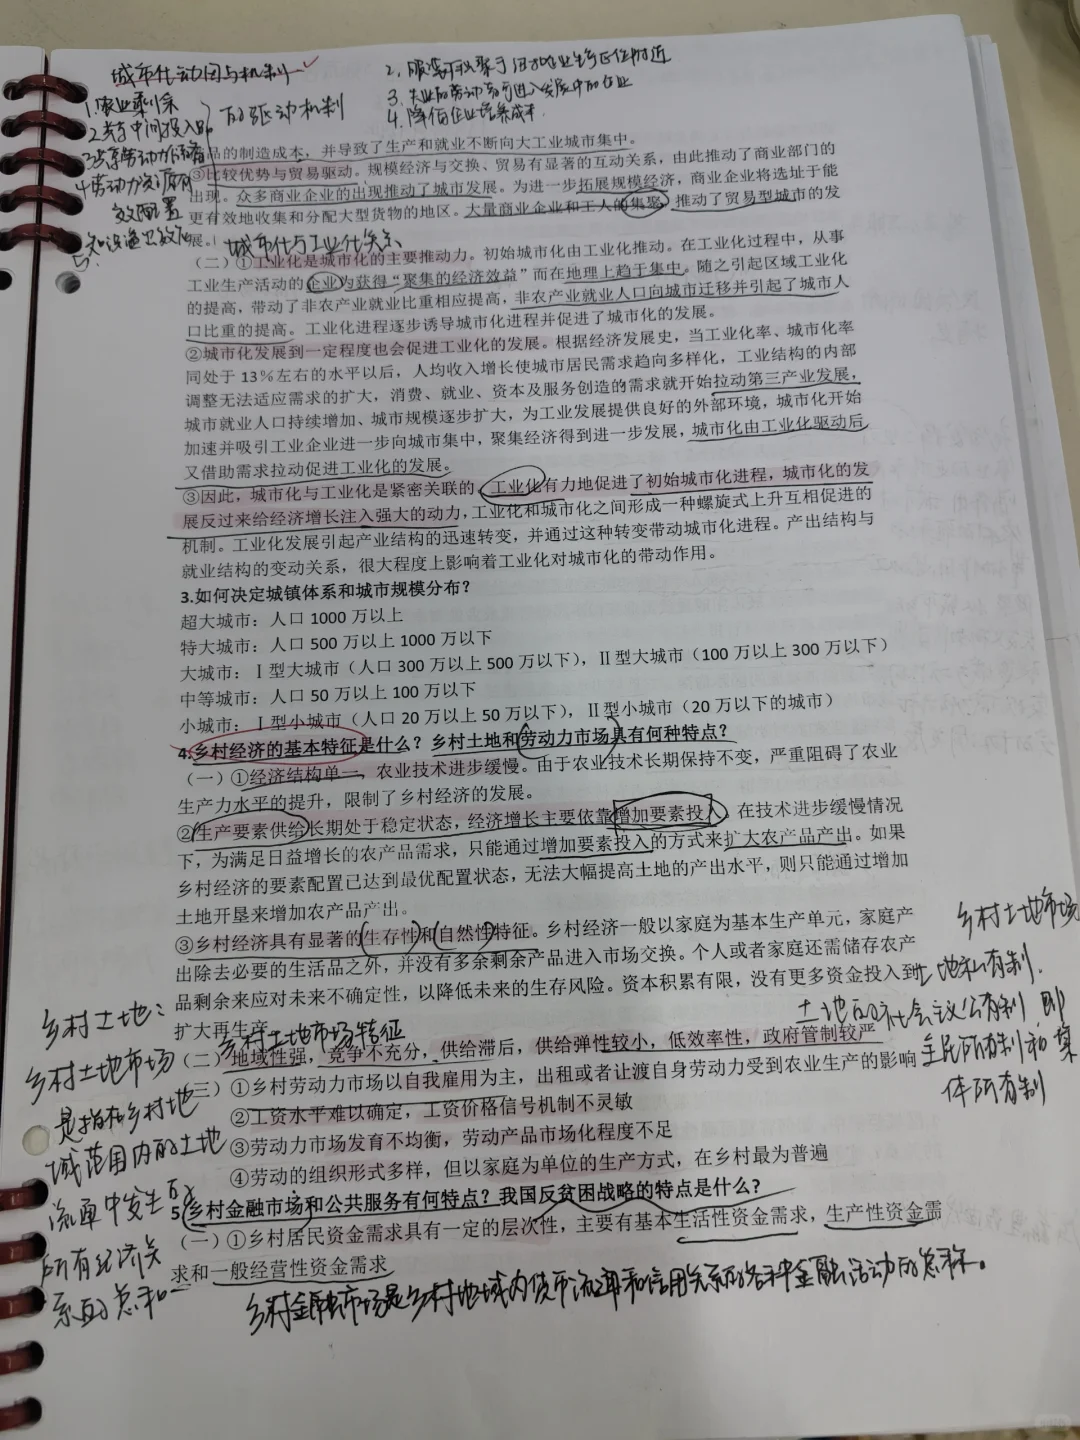 城市化动因与机制
1.农业剩余
2.共享中间投入品
3.共享劳动力储备
4.劳动力资源有
效配置
5.知识溢出效应
的驱动机制
3.失业的劳动力可进入发展中的行业
4.降低企业培养成本
品的制造成本，并导致了生产和就业不断向大工业城市集中。
③比较优势与贸易驱动。规模经济与交换、贸易有显著的互动关系，由此推动了商业部门的
出现。众多商业企业的出现推动了城市发展。为进一步拓展规模经济，商业企业将选址于能
更有效地收集和分配大型货物的地区。大量商业企业和工人的集聚，推动了贸易型城市的发
展。
城市化与工业化关系
（二）①工业化是城市化的主要推动力。初始城市化由工业化推动。在工业化过程中，从事
工业生产活动的企业为获得“聚集的经济效益”而在地理上趋于集中。随之引起区域工业化
的提高，带动了非农产业就业比重相应提高，非农产业就业人口向城市迁移并引起了城市人
口比重的提高。工业化进程逐步诱导城市化进程并促进了城市化的发展。
②城市化发展到一定程度也会促进工业化的发展。根据经济发展史，当工业化率、城市化率
同处于 13%左右的水平以后，人均收入增长使城市居民需求趋向多样化，工业结构的内部
调整无法适应需求的扩大，消费、就业、资本及服务创造的需求就开始拉动第三产业发展，
城市就业人口持续增加、城市规模逐步扩大，为工业发展提供良好的外部环境，城市化开始
加速并吸引工业企业进一步向城市集中，聚集经济得到进一步发展，城市化由工业化驱动后
又借助需求拉动促进工业化的发展。
③因此，城市化与工业化是紧密关联的，工业化有力地促进了初始城市化进程，城市化的发
展反过来给经济增长注入强大的动力，工业化和城市化之间形成一种螺旋式上升互相促进的
机制。工业化发展引起产业结构的迅速转变，并通过这种转变带动城市化进程。产出结构与
就业结构的变动关系，很大程度上影响着工业化对城市化的带动作用。
3.如何决定城镇体系和城市规模分布？
超大城市：人口 1000 万以上
特大城市：人口 500 万以上 1000 万以下
大城市：Ⅰ型大城市（人口 300 万以上 500 万以下），Ⅱ型大城市（100 万以上 300 万以下）
中等城市：人口 50 万以上 100 万以下
小城市：Ⅰ型小城市（人口 20 万以上 50 万以下），Ⅱ型小城市（20 万以下的城市）
4.乡村经济的基本特征是什么？乡村土地和劳动力市场具有何种特点？
（一）①经济结构单一，农业技术进步缓慢。由于农业技术长期保持不变，严重阻碍了农业
生产力水平的提升，限制了乡村经济的发展。
②生产要素供给长期处于稳定状态，经济增长主要依靠增加要素投入。在技术进步缓慢情况
下，为满足日益增长的农产品需求，只能通过增加要素投入的方式来扩大农产品产出。如果
乡村经济的要素配置已达到最优配置状态，无法大幅提高土地的产出水平，则只能通过增加
土地开垦来增加农产品产出。
③乡村经济具有显著的生存性和自然性特征。乡村经济一般以家庭为基本生产单元，家庭产
出除去必要的生活品之外，并没有多余剩余产品进入市场交换。个人或者家庭还需储存农产
品剩余来应对未来不确定性，以降低未来的生存风险。资本积累有限，没有更多资金投入到
扩大再生产
乡村土地市场特征
（二）地域性强，竞争不充分，供给滞后，供给弹性较小，低效率性，政府管制较严
（三）①乡村劳动力市场以自我雇用为主，出租或者让渡自身劳动力受到农业生产的影响
②工资水平难以确定，工资价格信号机制不灵敏
③劳动力市场发育不均衡，劳动产品市场化程度不足
④劳动的组织形式多样，但以家庭为单位的生产方式，在乡村最为普遍
5.乡村金融市场和公共服务有何特点？我国反贫困战略的特点是什么？
（一）①乡村居民资金需求具有一定的层次性，主要有基本生活性资金需求，生产性资金需
求和一般经营性资金需求
乡村金融市场是乡村地域内货币流通和信用关系的各种金融活动的总称。
乡村土地：
乡村土地市场
是指在乡村地
域范围内的土地
流通中发生的
所有经济关
系的总和
乡村土地市场
土地私有制.
土地的社会主义公有制，即
全民所有制和集
体所有制